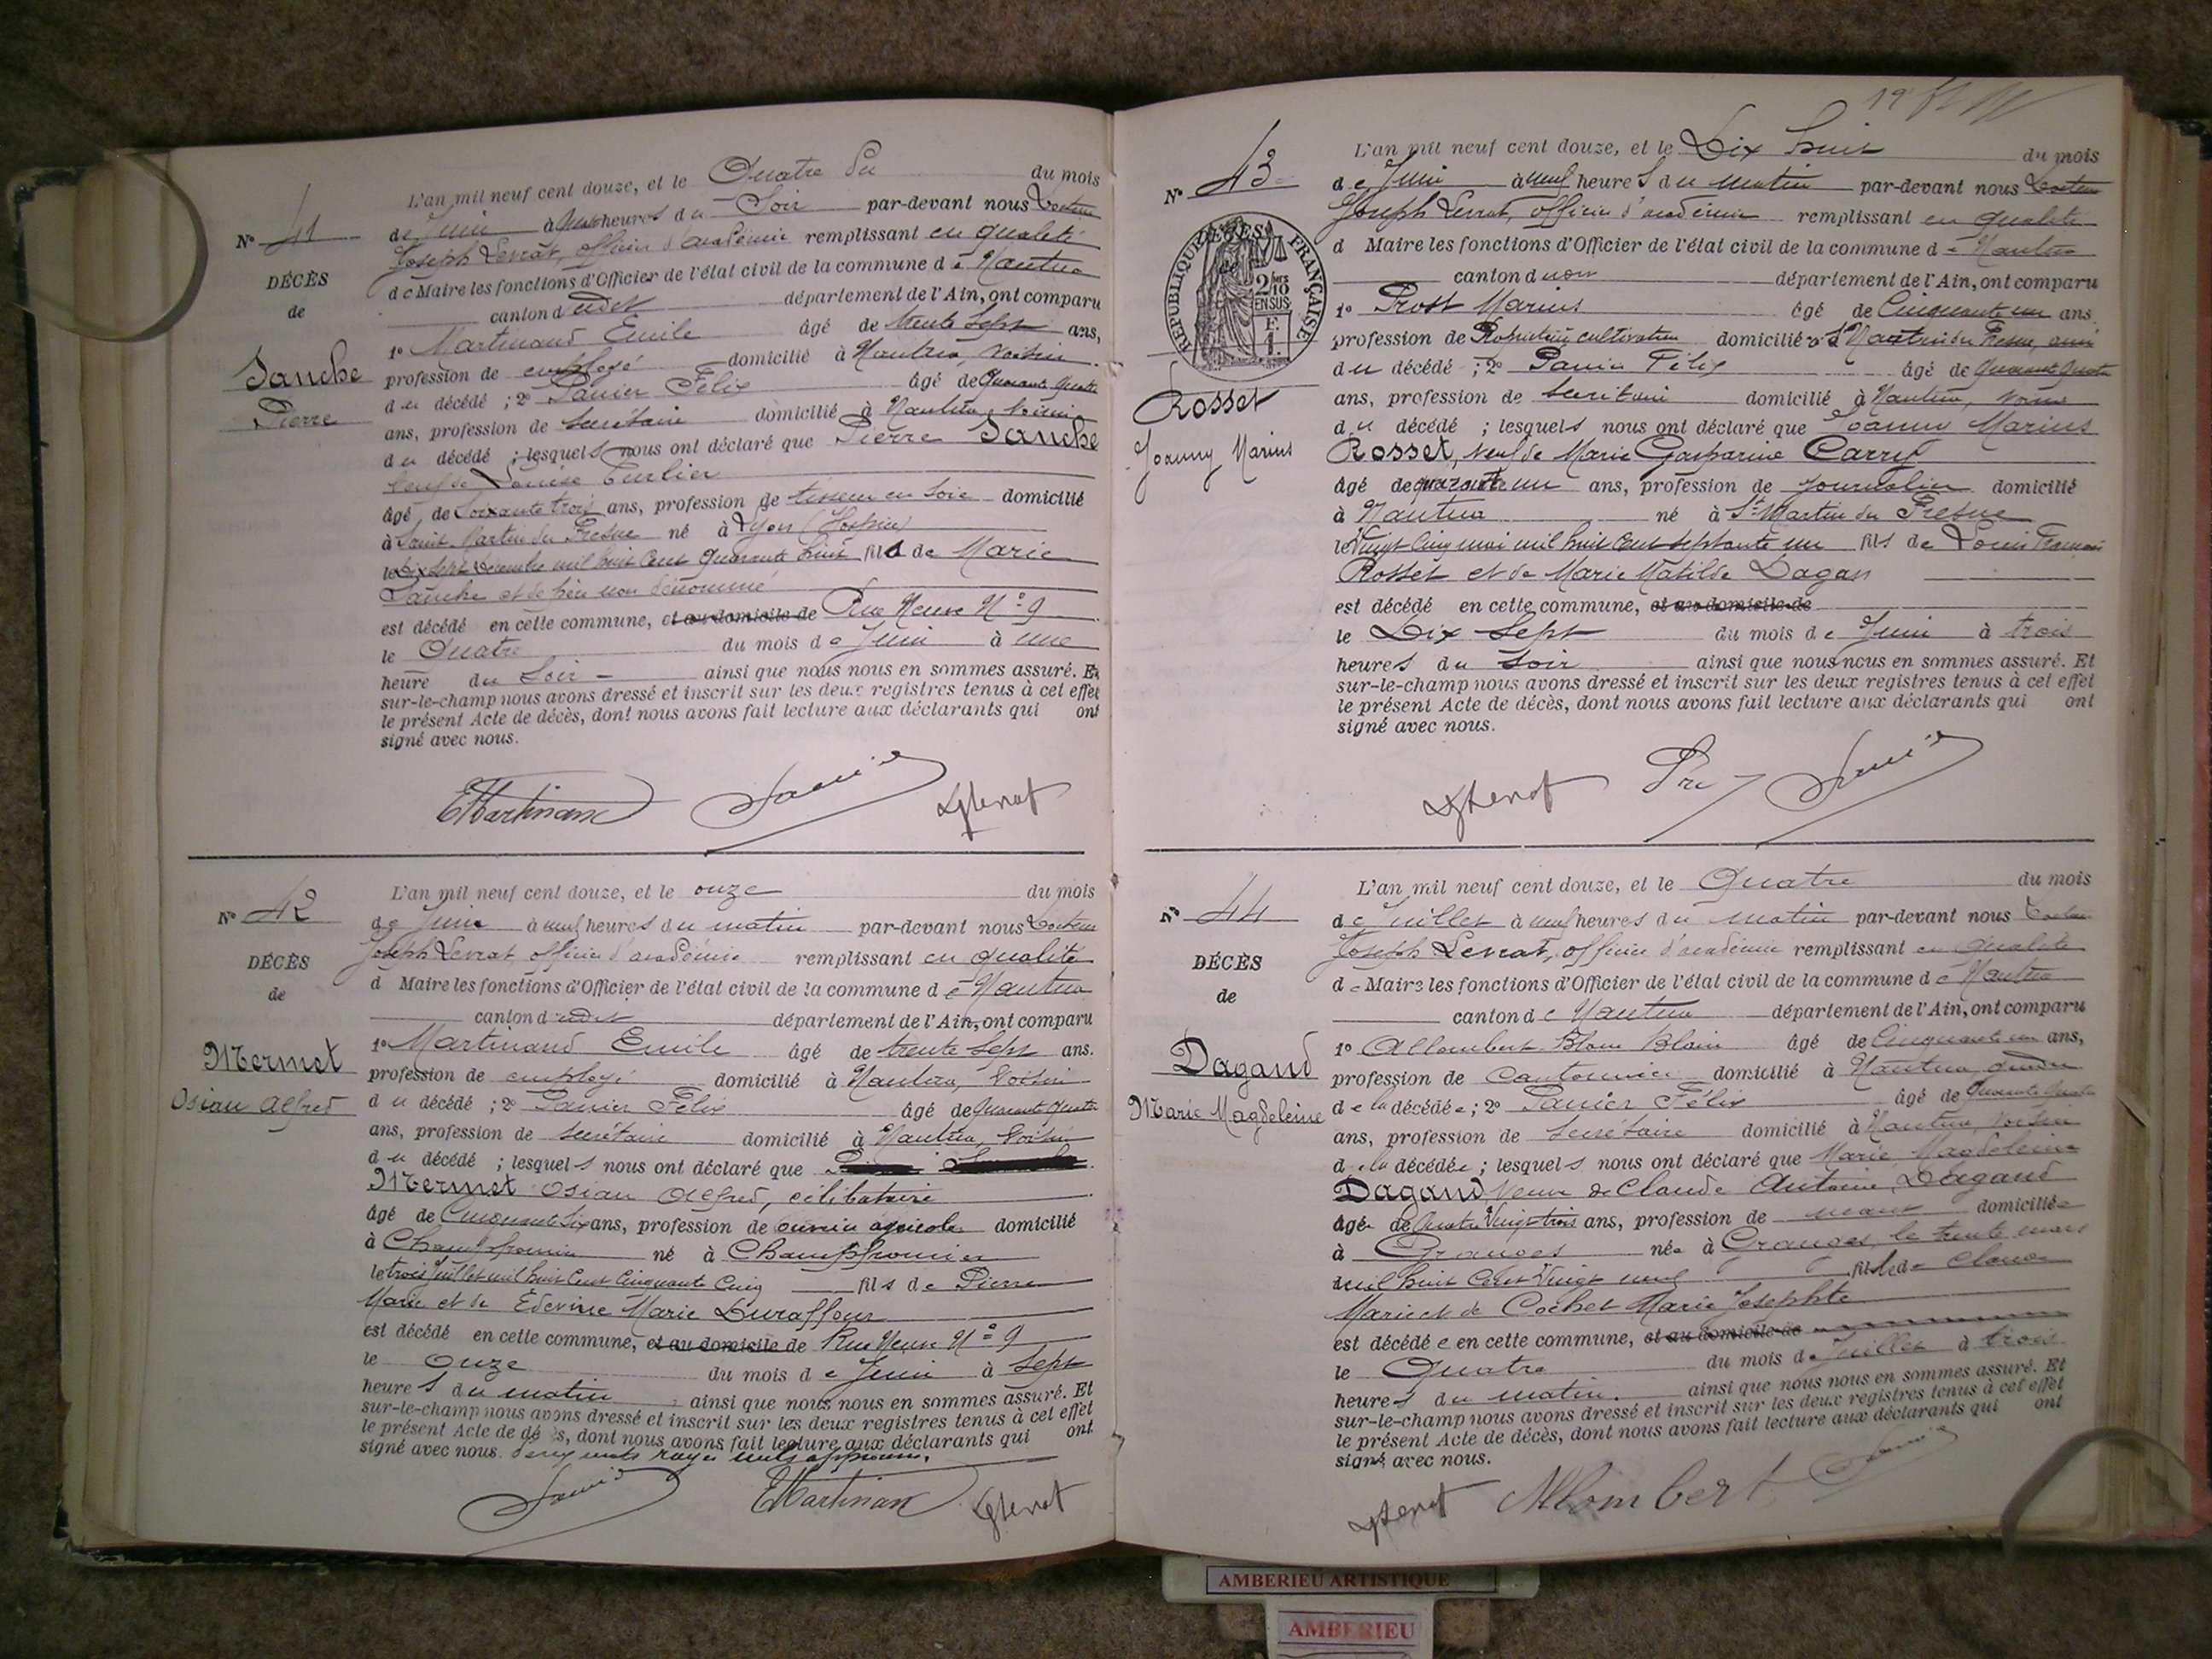 L'an mil neuf cent douze, et le Quatre du mois
N° 41
de Juin à heures du Soir par-devant nous Docteur
Joseph Levrat, officier d'académie remplissant en qualité
DÉCÈS
de Maire les fonctions d'Officier de l'état civil de la commune de Nantua
de
canton dudit département de l'Ain, ont comparu
1° Martinand Emile âgé de trente Sept ans,
Sanche
profession de employé domicilié à Nantua, voisin
Pierre
du décédé ; 2° Panier Félix âgé de Quarante Quatre
ans, profession de Secrétaire domicilié à Nantua, voisin
du décédé ; lesquels nous ont déclaré que Pierre Sanche
veuf de Louise Curlier
âgé de Soixante trois ans, profession de tisseur en Soie domicilié
à Saint Martin du Fresne né à Lyon (Hospice)
le Dix Sept Décembre mil huit Cent Quarante huit fils de Marie
Sanche et de père non dénommé
est décédé en cette commune, et au domicile de Rue Neuve N° 9
le Quatre du mois de Juin à une
heure du Soir ainsi que nous nous en sommes assuré. Et
sur-le-champ nous avons dressé et inscrit sur les deux registres tenus à cet effet
le présent Acte de décès, dont nous avons fait lecture aux déclarants qui ont
signé avec nous.
EMartinand
L'an mil neuf cent douze, et le onze du mois
N° 42
de Juin à neuf heures du matin par-devant nous Docteur
Joseph Levrat officier d'académie remplissant en qualité
DÉCÈS
d Maire les fonctions d'Officier de l'état civil de la commune de Nantua
de
canton dudit département de l'Ain, ont comparu
1° Martinand Emile âgé de trente Sept ans.
Mermet
profession de employé domicilié à Nantua, voisin
Osian Alfred
du décédé ; 2° Panier Félix âgé de Quarante Quatre
ans, profession de Secrétaire domicilié à Nantua, voisin
du décédé ; lesquels nous ont déclaré que
Mermet Osian Alfred, célibataire
âgé de Cinquante Six ans, profession de ouvrier agricole domicilié
à Champfromier né à Champfromier
le trois Juillet mil huit Cent Cinquante Cinq fils de Pierre
Marie et de Edevine Marie Duraffour
est décédé en cette commune, et au domicile de Rue Neuve N° 9
le onze du mois de Juin à Sept
heures du matin ainsi que nous nous en sommes assuré. Et
sur-le-champ nous avons dressé et inscrit sur les deux registres tenus à cet effet
le présent Acte de dé s, dont nous avons fait lecture aux déclarants qui ont
signé avec nous. deux mots rayés nuls approuvés.
EMartinand
19
L'an mil neuf cent douze, et le Dix huit du mois
N° 43
de Juin à neuf heures du matin par-devant nous Docteur
Joseph Levrat, officier d'académie remplissant en qualité
RÉPUBLIQUE FRANÇAISE
2/10 EN SUS
d Maire les fonctions d'Officier de l'état civil de la commune de Nantua
canton d département de l'Ain, ont comparu
1° Prost Marius âgé de Cinquante un ans
profession de Propriétaire cultivateur domicilié à St Martin du Fresne, ami
du décédé ; 2° Panier Félix âgé de Quarante Quatre
Rosset
ans, profession de Secrétaire domicilié à Nantua, voisin
Joanny Marius
du décédé ; lesquels nous ont déclaré que Joanny Marius
Rosset, veuf de Marie Gasparine Carry
âgé de quarante un ans, profession de journalier domicilié
à Nantua né à St Martin du Fresne
le Vingt Cinq mai mil huit Cent septante un fils de Louis François
Rosset et de Marie Matilde Dagan
est décédé en cette commune, et au domicile de
le Dix Sept du mois de Juin à trois
heures du Soir ainsi que nous nous en sommes assuré. Et
sur-le-champ nous avons dressé et inscrit sur les deux registres tenus à cet effet
le présent Acte de décès, dont nous avons fait lecture aux déclarants qui ont
signé avec nous.
L'an mil neuf cent douze, et le Quatre du mois
N° 44
de Juillet à neuf heures du matin par-devant nous Docteur
Joseph Levrat, officier d'académie remplissant en qualité
DÉCÈS
de Maire les fonctions d'Officier de l'état civil de la commune de Nantua
de
canton de Nantua département de l'Ain, ont comparu
1° Allombert Blain âgé de Cinquante un ans,
Dagand
profession de Cantonnier domicilié à Nantua, gendre
Marie Magdeleine
de la décédée ; 2° Panier Félix âgé de Quarante Quatre
ans, profession de Secrétaire domicilié à Nantua, voisin
de la décédée ; lesquels nous ont déclaré que Marie Magdeleine
Dagand, veuve de Claude Antoine Dagand
âgée de Quatre Vingt trois ans, profession de néant domiciliée
à Granges née à Granges, le trente mars
mil huit Cent Vingt neuf fille de Claude
Marie et de Cochet Marie Josephte
est décédée en cette commune, et au domicile de
le Quatre du mois de Juillet à trois
heures du matin. ainsi que nous nous en sommes assuré. Et
sur-le-champ nous avons dressé et inscrit sur les deux registres tenus à cet effet
le présent Acte de décès, dont nous avons fait lecture aux déclarants qui ont
signé avec nous.
Allombert
AMBERIEU ARTISTIQUE
AMBERIEU